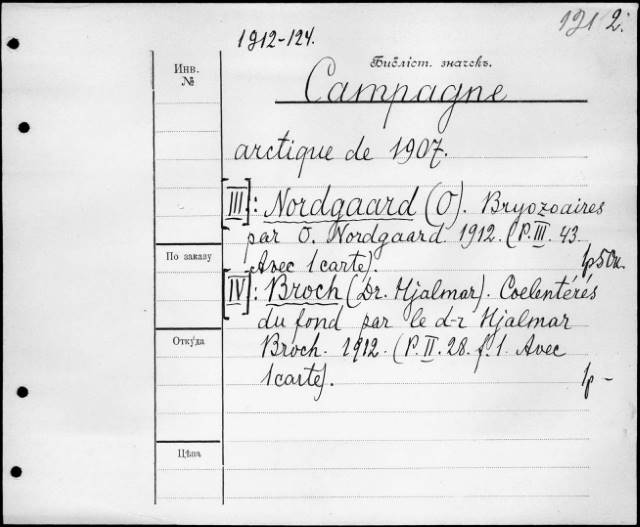 1912-124.
1912.
Инв.
№
Библіот. значекъ.
Campagne
arctique de 1907.
[III]: Nordgaard (O). Bryozoaires
par O. Nordgaard. 1912. (P. III. 43.
По заказу
Avec 1 carte).
1р50к.
[IV]: Broch (Dr. Hjalmar). Coelentérés
du fond par le d-r Hjalmar
Откуда
Broch. 1912. (P. II. 28. f. 1. Avec
1 carte).
1р -
Цѣна